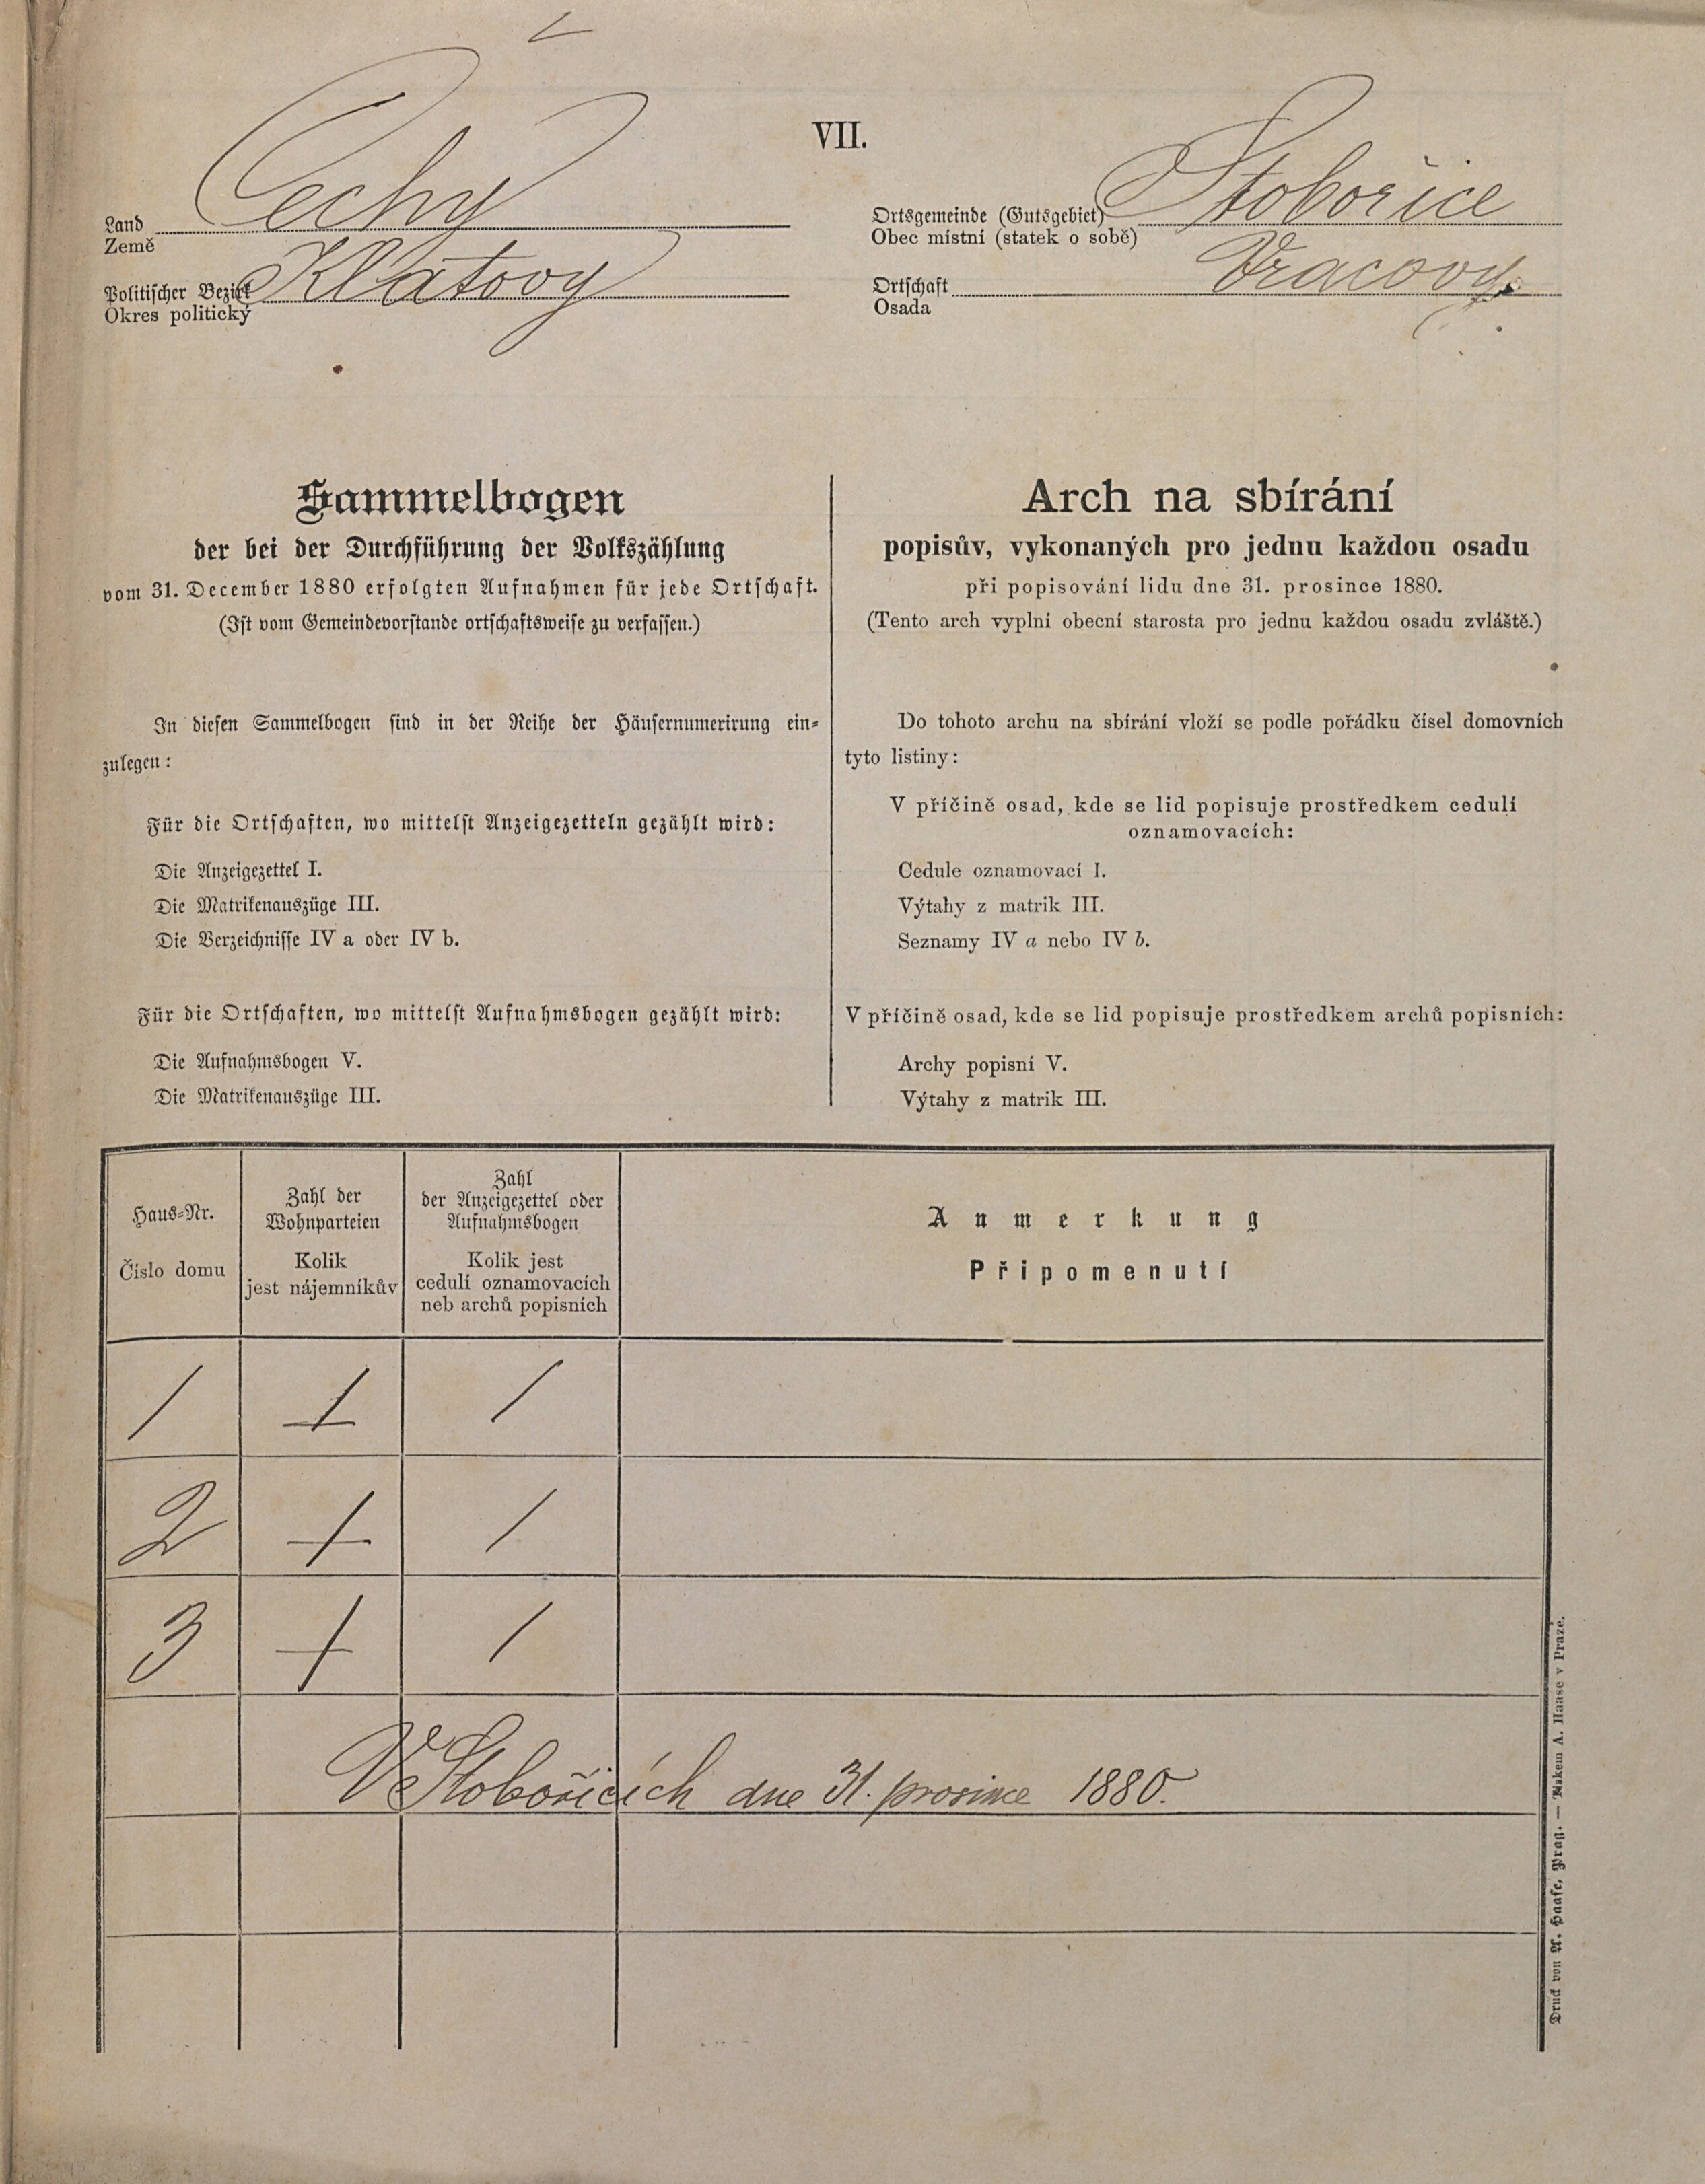 VII.
Land Čechy
Země
Politischer Bezirk Klatovy
Okres politický
Ortsgemeinde (Gutsgebiet) Stobořice
Obec místní (statek o sobě)
Ortschaft Vracovy
Osada
Sammelbogen
der bei der Durchführung der Volkszählung
vom 31. December 1880 erfolgten Aufnahmen für jede Ortschaft.
(Ist vom Gemeindevorstande ortschaftsweise zu verfassen.)
In diesen Sammelbogen sind in der Reihe der Häusernumerirung ein-
zulegen:
Für die Ortschaften, wo mittelst Anzeigezetteln gezählt wird:
Die Anzeigezettel I.
Die Matrikenauszüge III.
Die Verzeichnisse IV a oder IV b.
Für die Ortschaften, wo mittelst Aufnahmsbogen gezählt wird:
Die Aufnahmsbogen V.
Die Matrikenauszüge III.
Arch na sbírání
popisův, vykonaných pro jednu každou osadu
při popisování lidu dne 31. prosince 1880.
(Tento arch vyplní obecní starosta pro jednu každou osadu zvláště.)
Do tohoto archu na sbírání vloží se podle pořádku čísel domovních
tyto listiny:
V příčině osad, kde se lid popisuje prostředkem cedulí
oznamovacích:
Cedule oznamovací I.
Výtahy z matrik III.
Seznamy IV a nebo IV b.
V příčině osad, kde se lid popisuje prostředkem archů popisních:
Archy popisní V.
Výtahy z matrik III.
Haus-Nr.
Číslo domu
Zahl der
Wohnparteien
Kolik
jest nájemníkův
Zahl
der Anzeigezettel oder
Aufnahmsbogen
Kolik jest
cedulí oznamovacích
neb archů popisních
Anmerkung
Připomenutí
1 1 1
2 1 1
3 1 1
V Stobořicích dne 31. prosince 1880.
Druck von A. Haase, Prag. — Tiskem A. Haase v Praze.